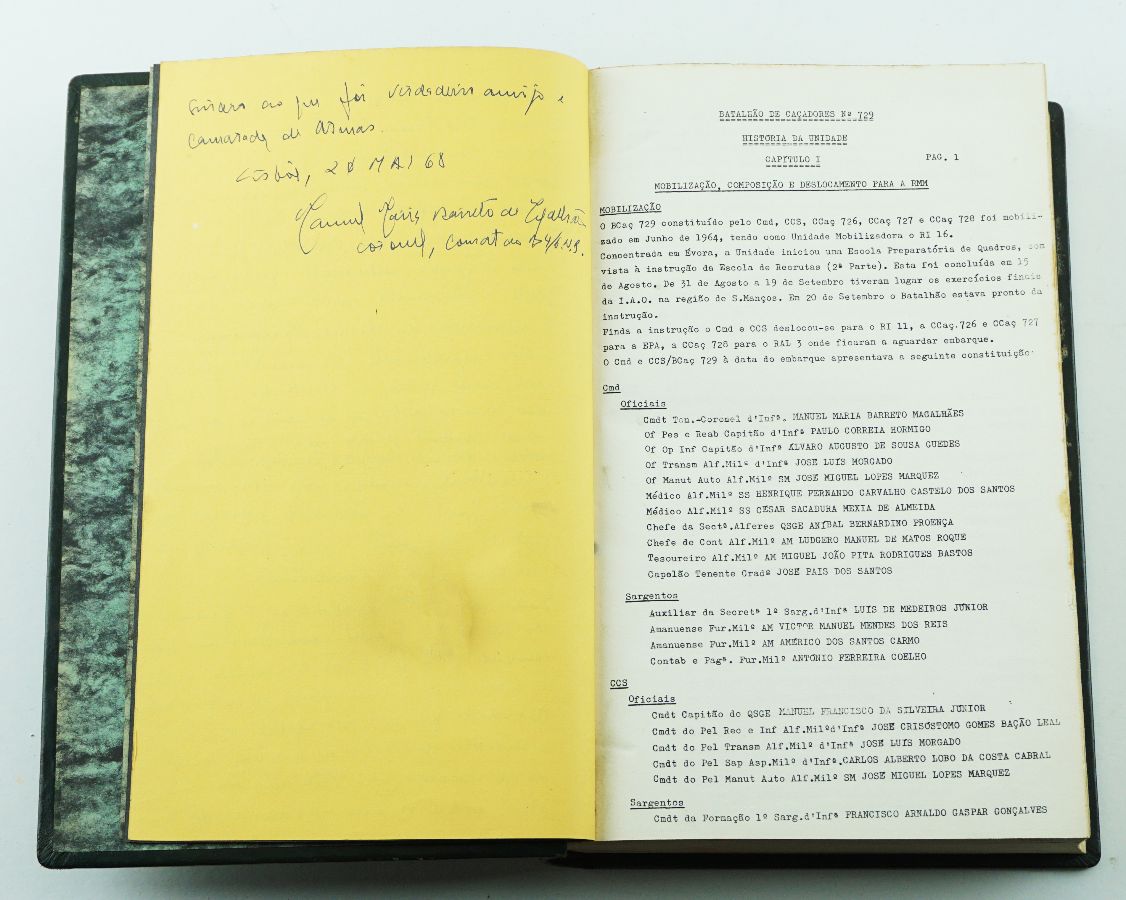 ao que foi verdadeiro amigo e
camarada de armas.
Lisboa, 20 MAI 68
Manuel Maria Barreto de Magalhães
coronel,
BATALHÃO DE CAÇADORES Nº 729
HISTORIA DA UNIDADE
CAPÍTULO I PAG. 1
MOBILIZAÇÃO, COMPOSIÇÃO E DESLOCAMENTO PARA A RMM
MOBILIZAÇÃO
O BCaç 729 constituído pelo Cmd, CCS, CCaç 726, CCaç 727 e CCaç 728 foi mobili-
zado em Junho de 1964, tendo como Unidade Mobilizadora o RI 16.
Concentrada em Évora, a Unidade iniciou uma Escola Preparatória de Quadros, com
vista à instrução da Escola de Recrutas (2ª Parte). Esta foi concluída em 15
de Agosto. De 31 de Agosto a 19 de Setembro tiveram lugar os exercícios finais
da I.A.O. na região de S.Manços. Em 20 de Setembro o Batalhão estava pronto da
instrução.
Finda a instrução o Cmd e CCS deslocou-se para o RI 11, a CCaç.726 e CCaç 727
para a EPA, a CCaç 728 para o RAL 3 onde ficaram a aguardar embarque.
O Cmd e CCS/BCaç 729 à data do embarque apresentava a seguinte constituição:
Cmd
Oficiais
Cmdt Ten.-Coronel d'Infª. MANUEL MARIA BARRETO MAGALHÃES
Of Pes e Reab Capitão d'Infª PAULO CORREIA HORMIGO
Of Op Inf Capitão d'Infª ÁLVARO AUGUSTO DE SOUSA GUEDES
Of Transm Alf.Milº d'Infª JOSÉ LUIS MORGADO
Of Manut Auto Alf.Milº SM JOSÉ MIGUEL LOPES MARQUEZ
Médico Alf.Milº SS HENRIQUE FERNANDO CARVALHO CASTELO DOS SANTOS
Médico Alf.Milº SS CÉSAR SACADURA MEXIA DE ALMEIDA
Chefe da Sectª.Alferes QSGE ANÍBAL BERNARDINO PROENÇA
Chefe de Cont Alf.Milº AM LUDGERO MANUEL DE MATOS ROQUE
Tesoureiro Alf.Milº AM MIGUEL JOÃO PITA RODRIGUES BASTOS
Capelão Tenente Gradº JOSÉ PAIS DOS SANTOS
Sargentos
Auxiliar da Secretª 1º Sarg.d'Infª LUIS DE MEDEIROS JÚNIOR
Amanuense Fur.Milº AM VICTOR MANUEL MENDES DOS REIS
Amanuense Fur.Milº AM AMÉRICO DOS SANTOS CARMO
Contab e Pagª. Fur.Milº ANTÓNIO FERREIRA COELHO
CCS
Oficiais
Cmdt Capitão do QSGE MANUEL FRANCISCO DA SILVEIRA JÚNIOR
Cmdt do Pel Rec e Inf Alf.Milºd'Infª JOSÉ CRISÓSTOMO GOMES BAÇÃO LEAL
Cmdt do Pel Transm Alf.Milº d'Infª JOSÉ LUÍS MORGADO
Cmdt do Pel Sap Asp.Milº d'Infª.CARLOS ALBERTO LOBO DA COSTA CABRAL
Cmdt do Pel Manut Auto Alf.Milº SM JOSÉ MIGUEL LOPES MARQUEZ
Sargentos
Cmdt da Formação 1º Sarg.d'Infª FRANCISCO ARNALDO GASPAR GONÇALVES